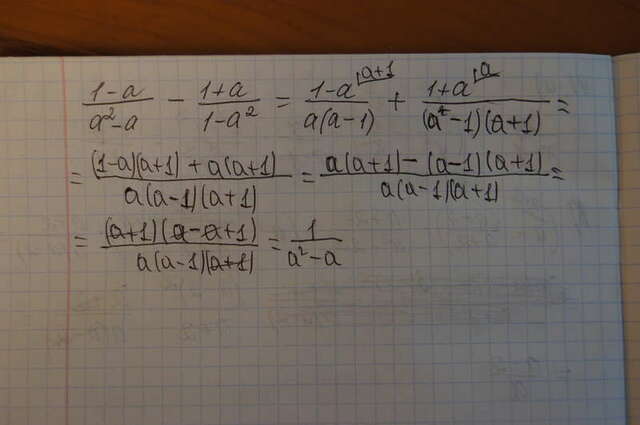 (1-a)/(a²-a) - (1+a)/(1-a²) = (1-a)^{⌈a+1}/(a(a-1)) + (1+a)^{⌈a}/((a-1)(a+1)) =
= ((1-a)(a+1) + a(a+1))/(a(a-1)(a+1)) = (a(a+1) - (a-1)(a+1))/(a(a-1)(a+1)) =
= ((a+1)(a-a+1))/(a(a-1)(a+1)) = 1/(a²-a)